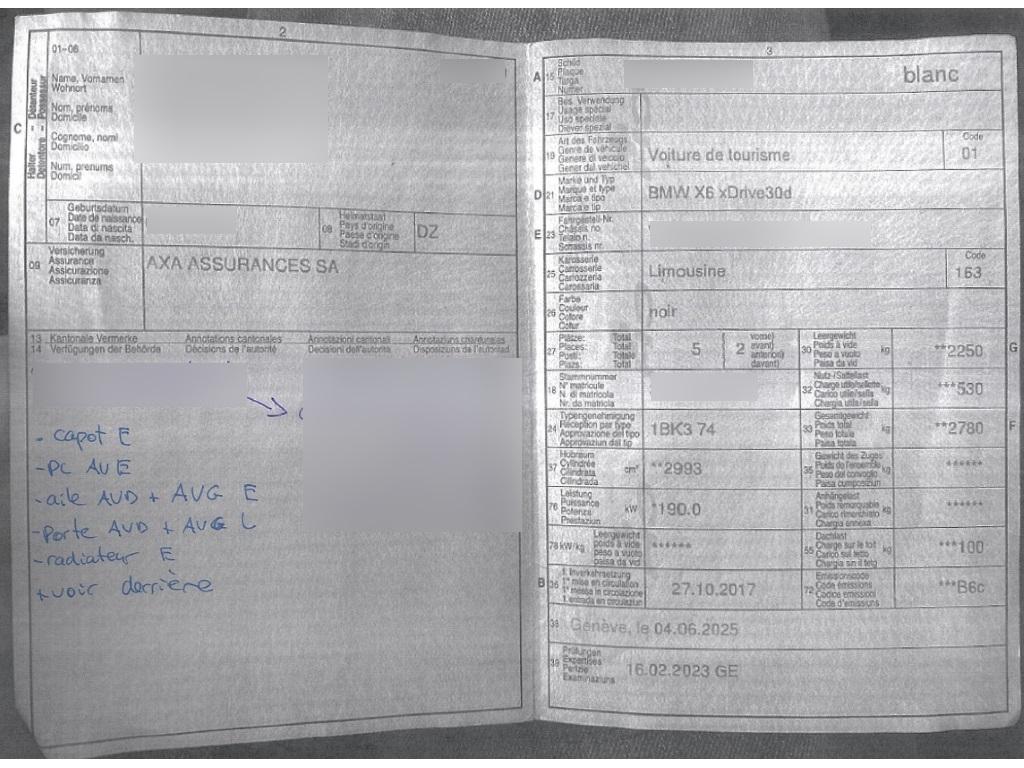 2
01-06
Halter - Détenteur
Detentore - Possessur
C
Name, Vornamen
Wohnort
Nom, prénoms
Domicile
Cognome, nomi
Domicilio
Num, prenums
Domicil
07
Geburtsdatum
Date de naissance
Data di nascita
Data da nasch.
08
Heimatstaat
Pays d'origine
Paese d'origine
Stadi d'origin
DZ
09
Versicherung
Assurance
Assicurazione
Assicuranza
AXA ASSURANCES SA
13 Kantonale Vermerke Annotations cantonales Annotazioni cantonali Annotaziuns chantunalas
14 Verfügungen der Behörde Décisions de l'autorité Decisioni dell'autorità Disposiziuns da l'autoritad
- capot E
- PC AV E
- aile AVD + AVG E
- Porte AVD + AVG L
- radiateur E
+ voir derrière
3
A 15
Schild
Plaque
Targa
Numer
blanc
17
Bes. Verwendung
Usage spécial
Uso speciale
Diever spezial
19
Art des Fahrzeugs
Genre de véhicule
Genere di veicolo
Gener dal vehichel
Voiture de tourisme
Code
01
D 21
Marke und Typ
Marque et type
Marca e tipo
Marca e tip
BMW X6 xDrive30d
E 23
Fahrgestell-Nr.
Châssis no
Telaio n.
Schassis nr.
25
Karosserie
Carrosserie
Carrozzeria
Carossaria
Limousine
Code
163
26
Farbe
Couleur
Colore
Colur
noir
27
Plätze: Total
Places: Total
Posti: Totale
Plazs: Total
5
2
vorne)
avant)
anteriori)
davant)
30
Leergewicht
Poids à vide
Peso a vuoto
Paisa da vid
kg
**2250
G
18
Stammnummer
N° matricule
N. di matricola
Nr. da matricla
32
Nutz-/Sattellast
Charge utile/sellette
Carico utile/sella
Chargia utila/sella
kg
***530
24
Typengenehmigung
Réception par type
Approvazione del tipo
Approvaziun dal tip
1BK3 74
33
Gesamtgewicht
Poids total
Peso totale
Paisa totala
kg
**2780
F
37
Hubraum
Cylindrée
Cilindrata
Cilindrada
cm³
**2993
35
Gewicht des Zuges
Poids de l'ensemble
Peso del convoglio
Paisa cumposiziun
kg
******
76
Leistung
Puissance
Potenza
Prestaziun
kW
*190.0
31
Anhängelast
Poids remorquable
Carico rimorchiato
Chargia annexa
kg
******
78 kW/kg
Leergewicht
poids à vide
peso a vuoto
paisa da vid
******
55
Dachlast
Charge sur le toit
Carico sul tetto
Chargia sin il tetg
kg
***100
B 36
1. Inverkehrsetzung
1re mise en circulation
1a messa in circolazione
1. entrada en circulaziun
27.10.2017
72
Emissionscode
Code émissions
Codice emissioni
Code d'emissiuns
***B6c
38
Genève, le 04.06.2025
39
Prüfungen
Expertises
Perizie
Examinaziuns
16.02.2023 GE